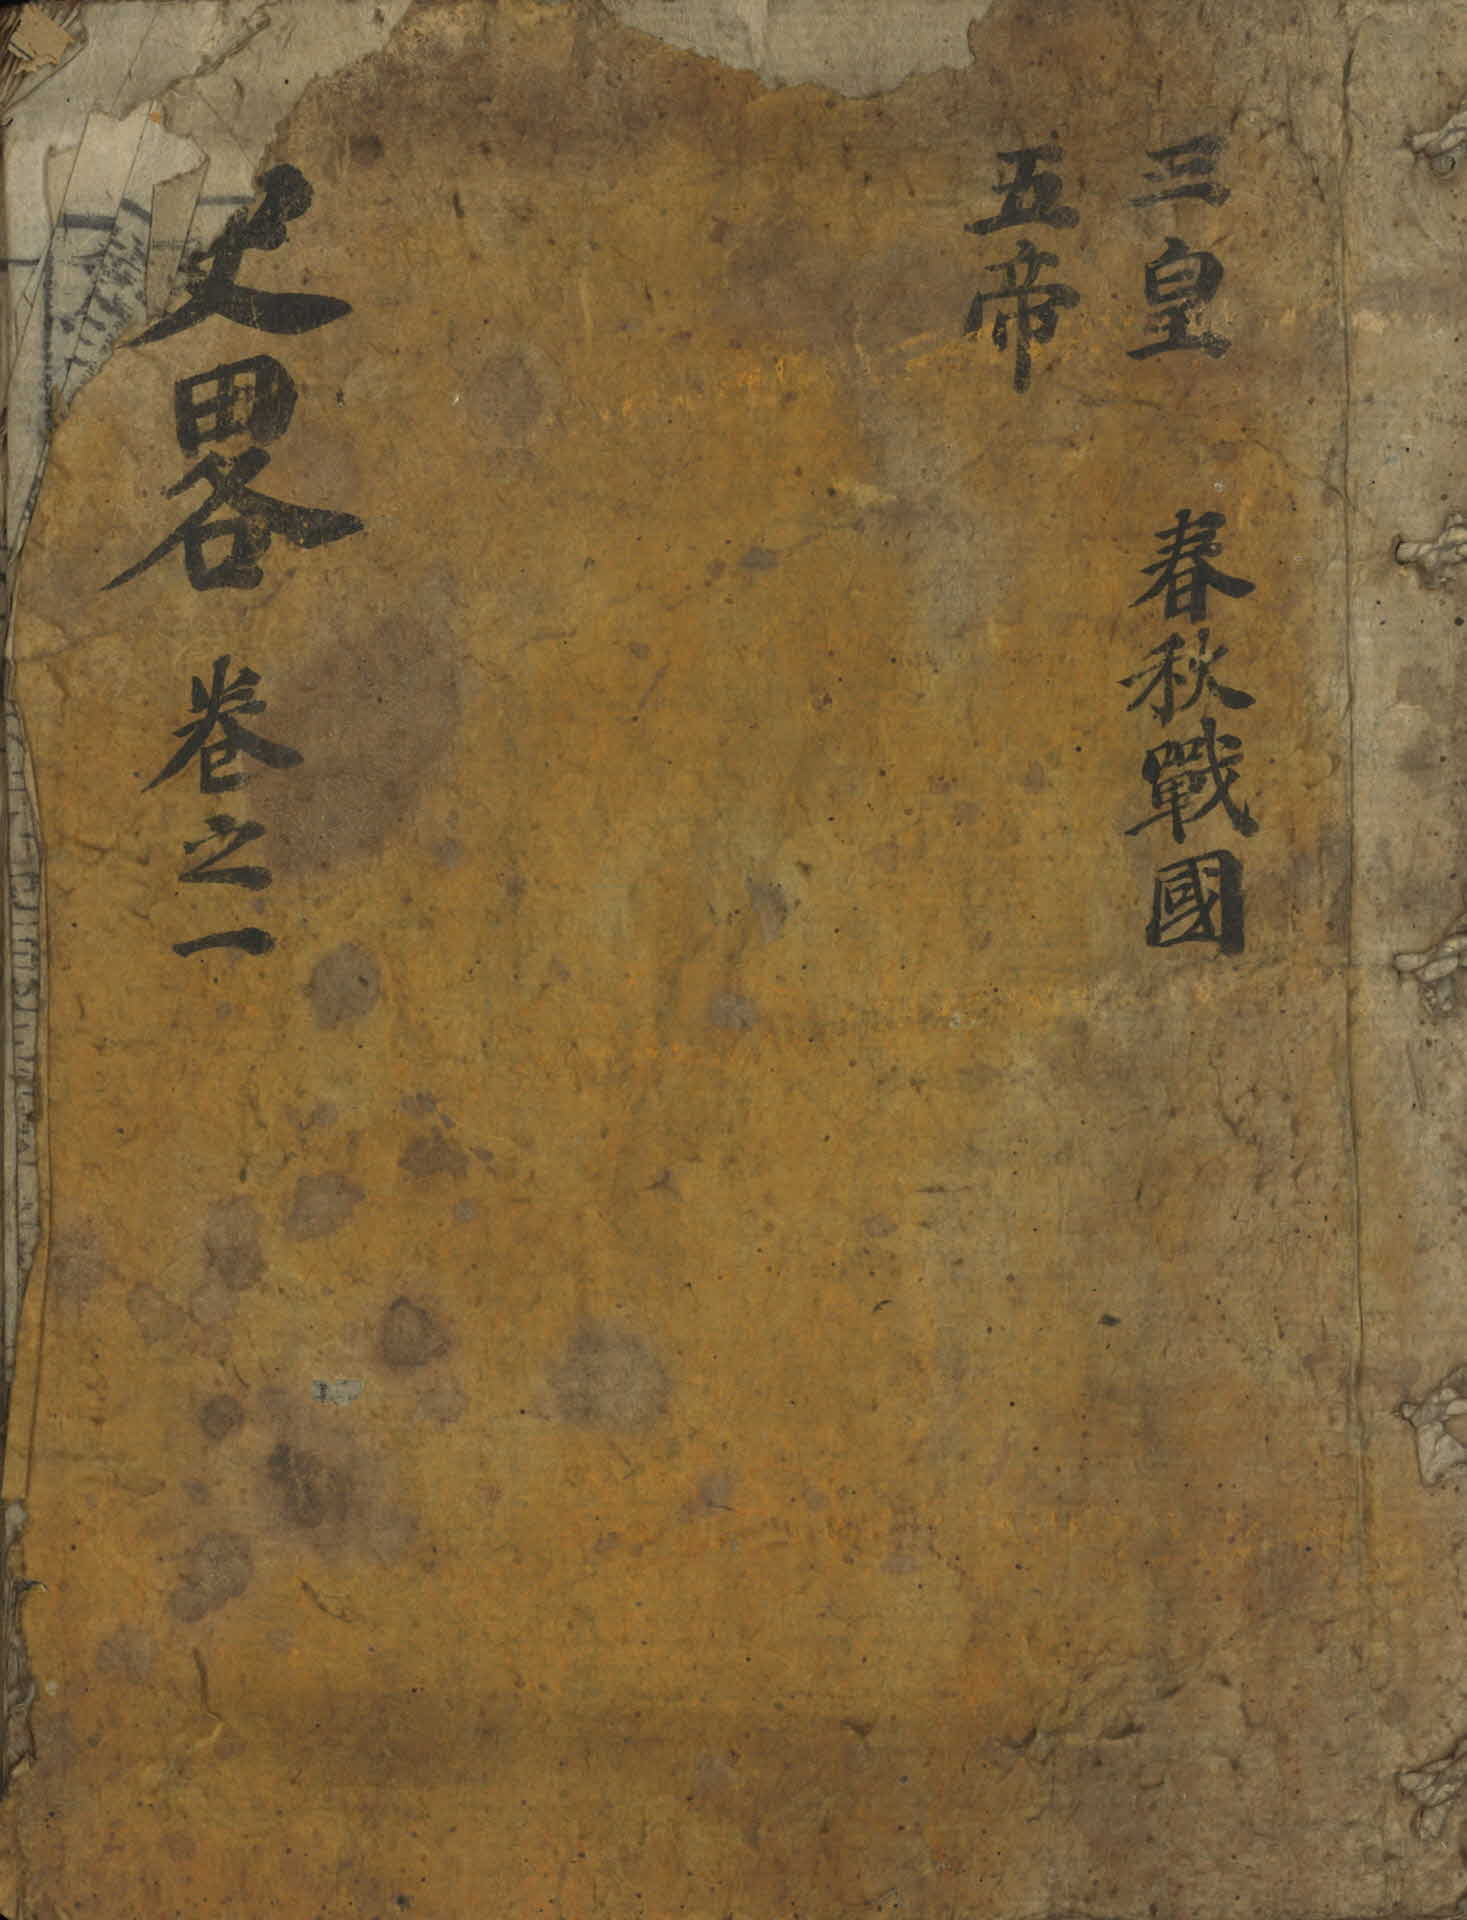 三皇 春秋戰國
五帝
史畧 卷之一